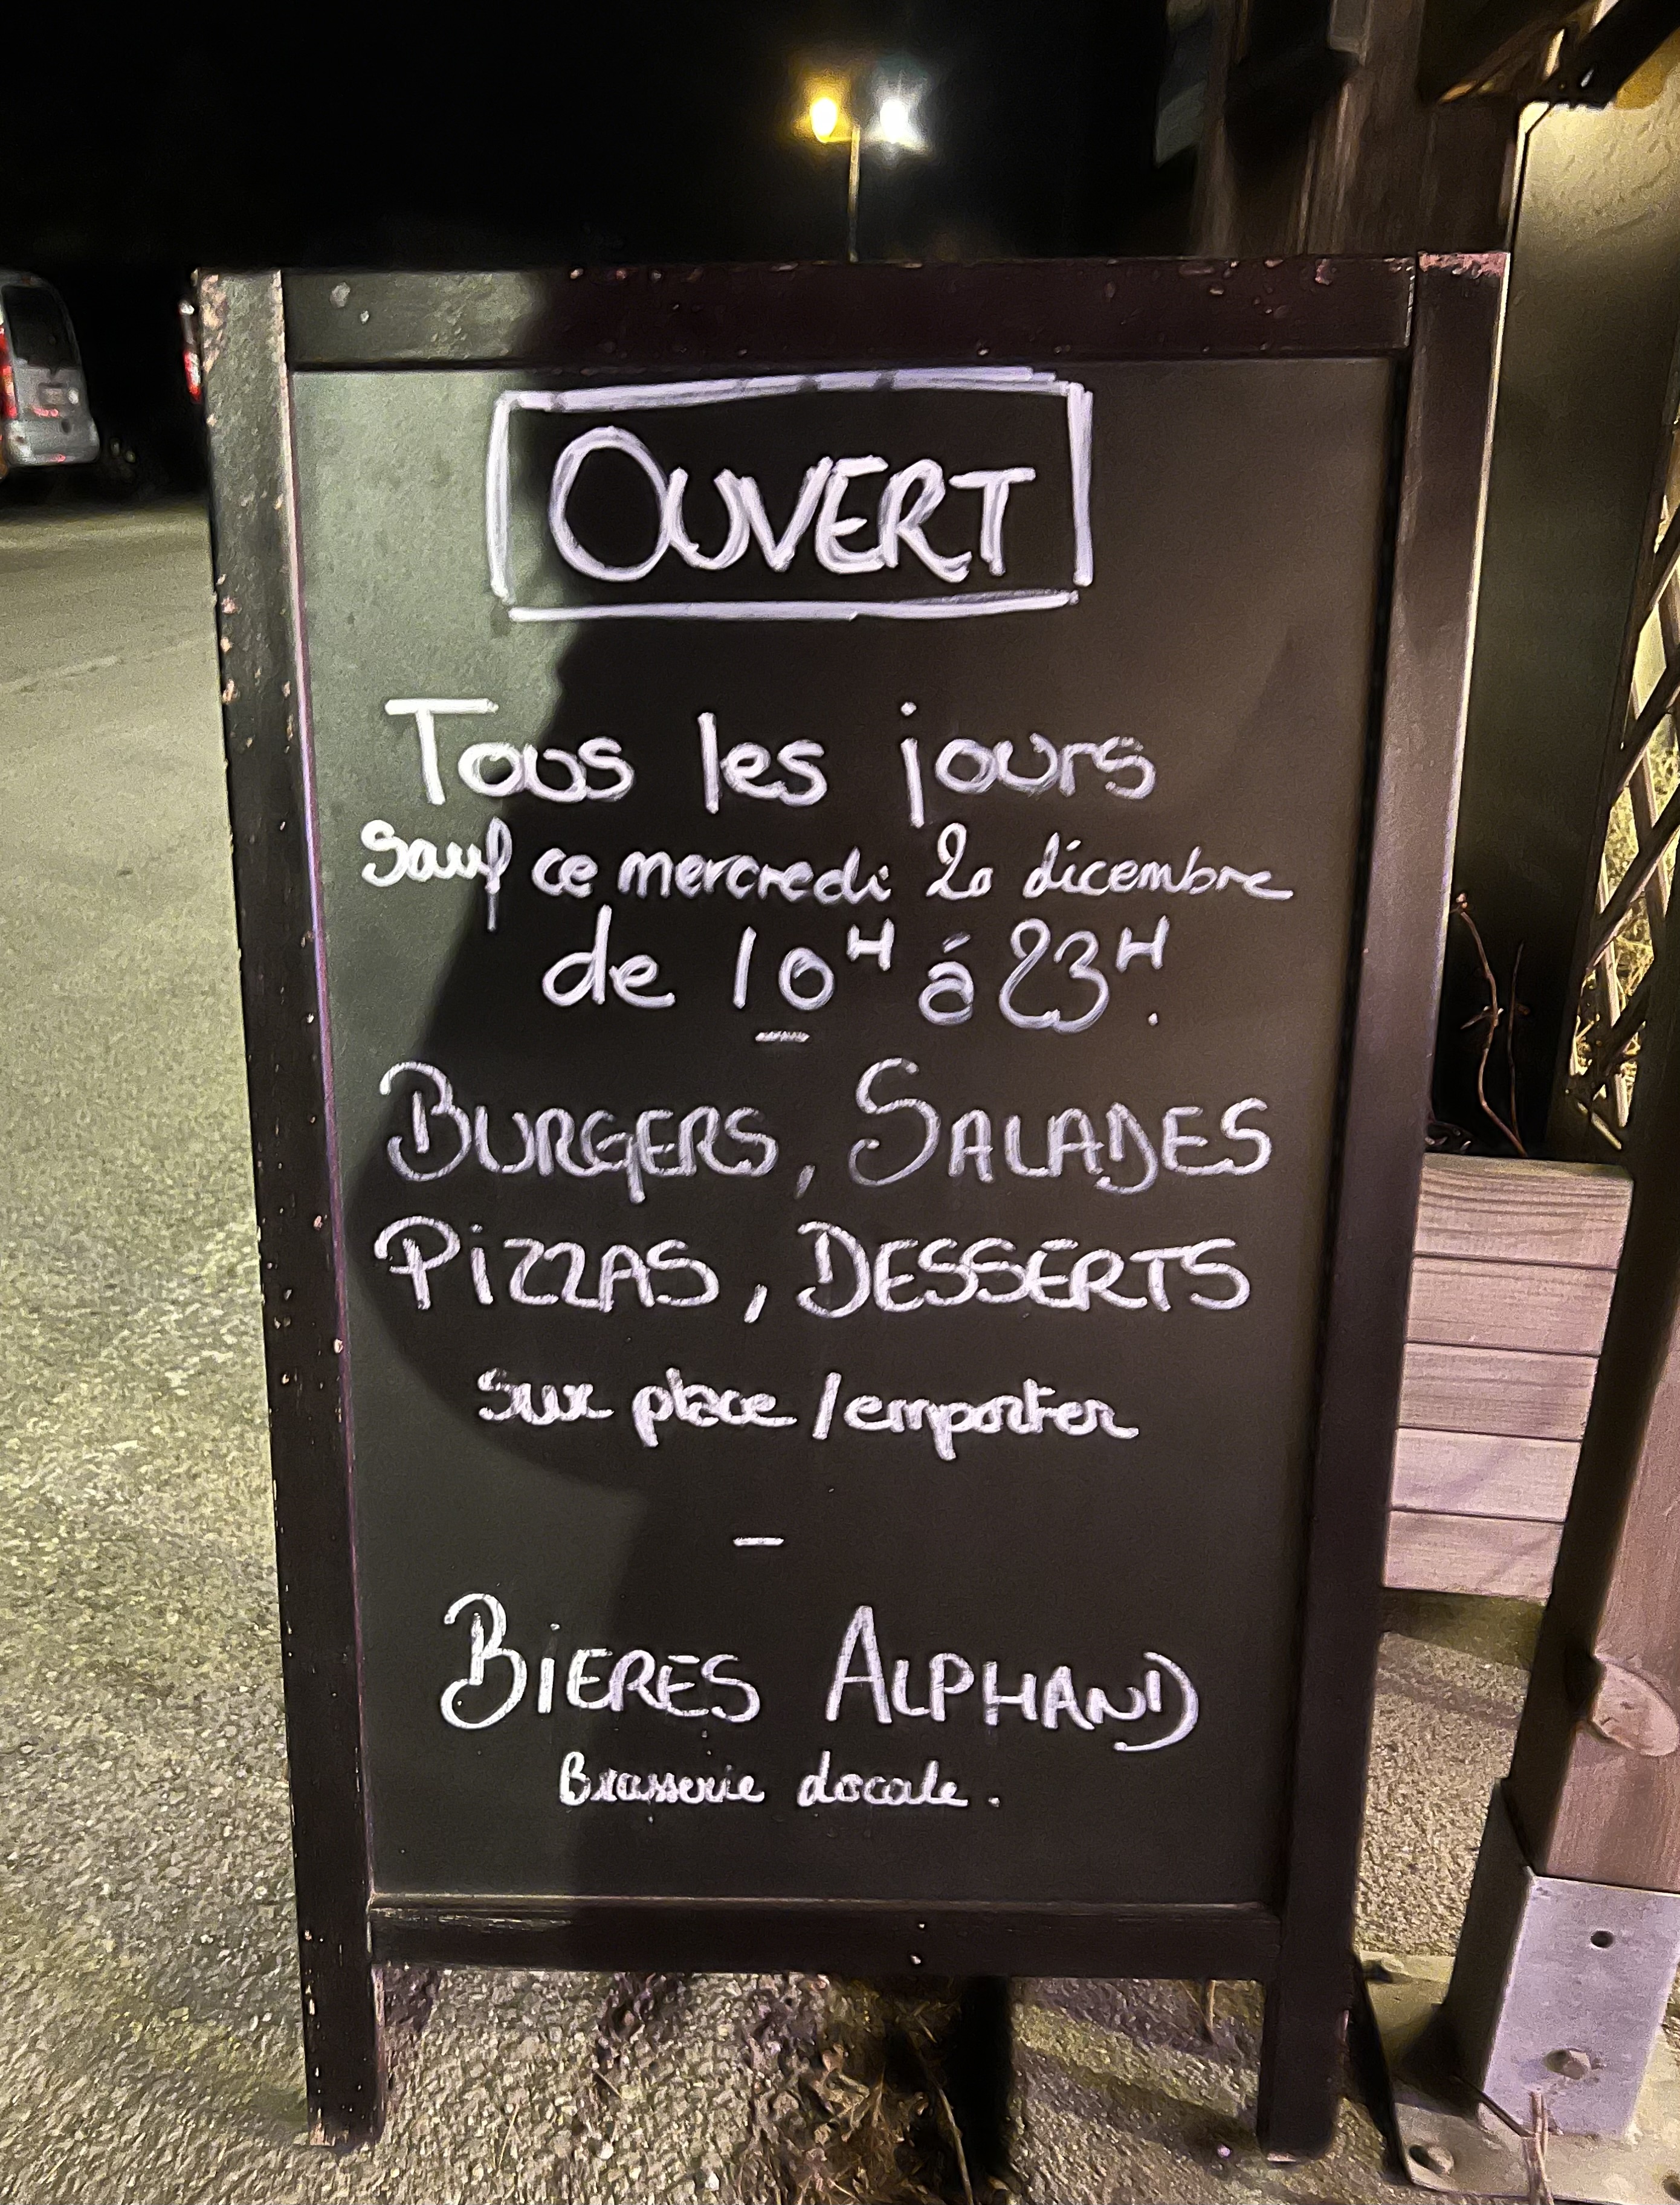 OUVERT
Tous les jours
sauf ce mercredi 20 dicembre
de 10H á 23H.
BURGERS, SALADES
PIZZAS, DESSERTS
sur place / emporter
BIERES ALPHAND
Brasserie locale.